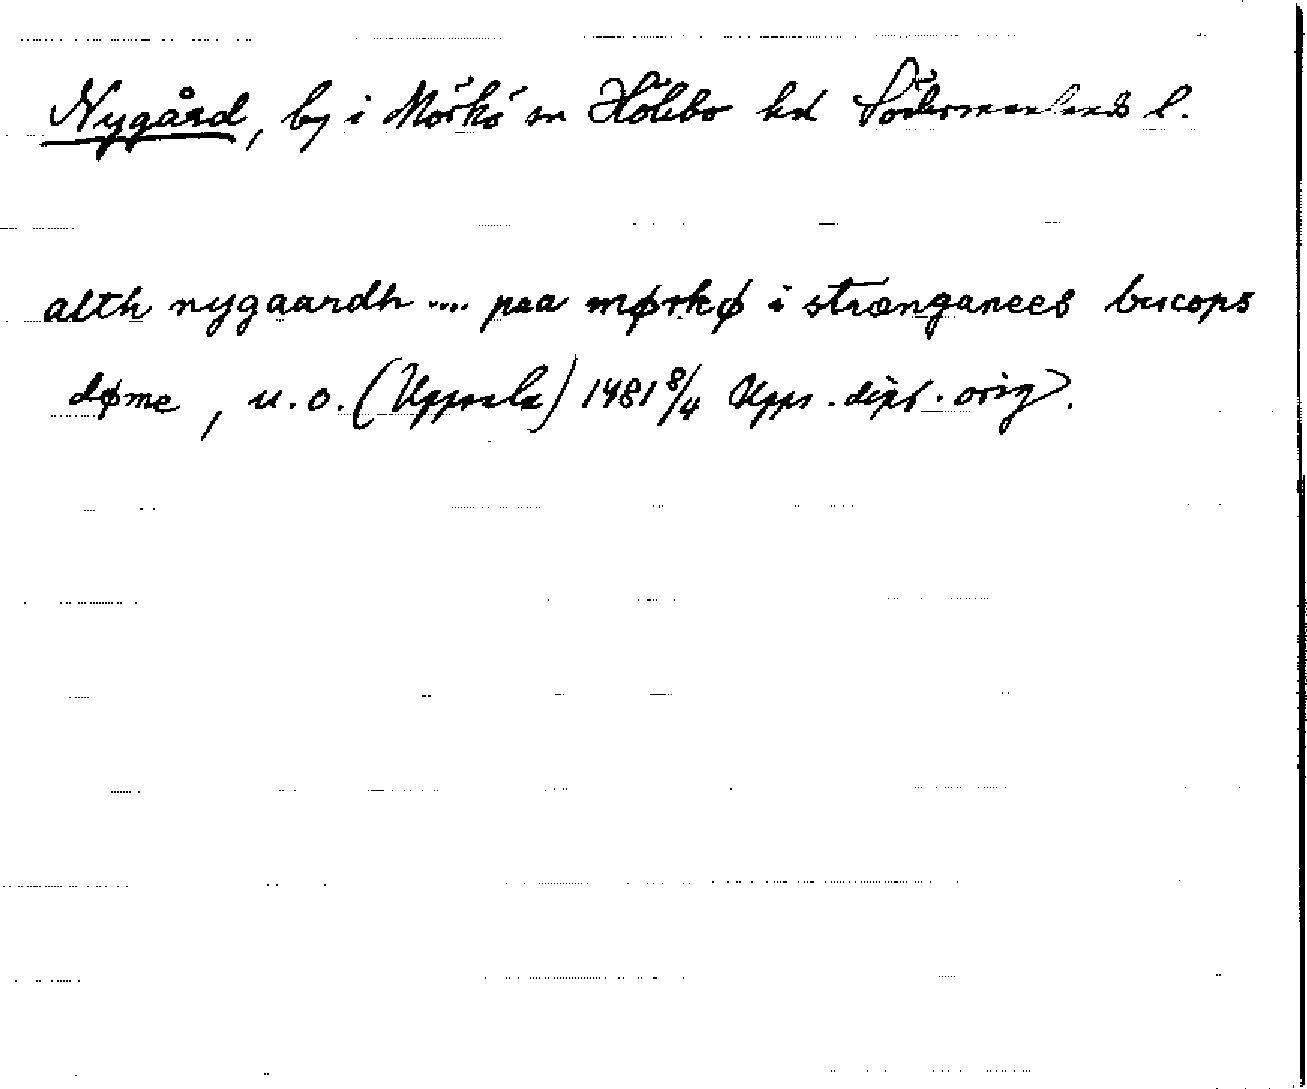 Nygård, by i Mörkö sn Hölebo hd Södermanlands l.
alth nygaardh .... paa mørkø i strænganees bucops
døme, u.o. (Uppsala) 1481 8/4 Upps. dipl. orig.